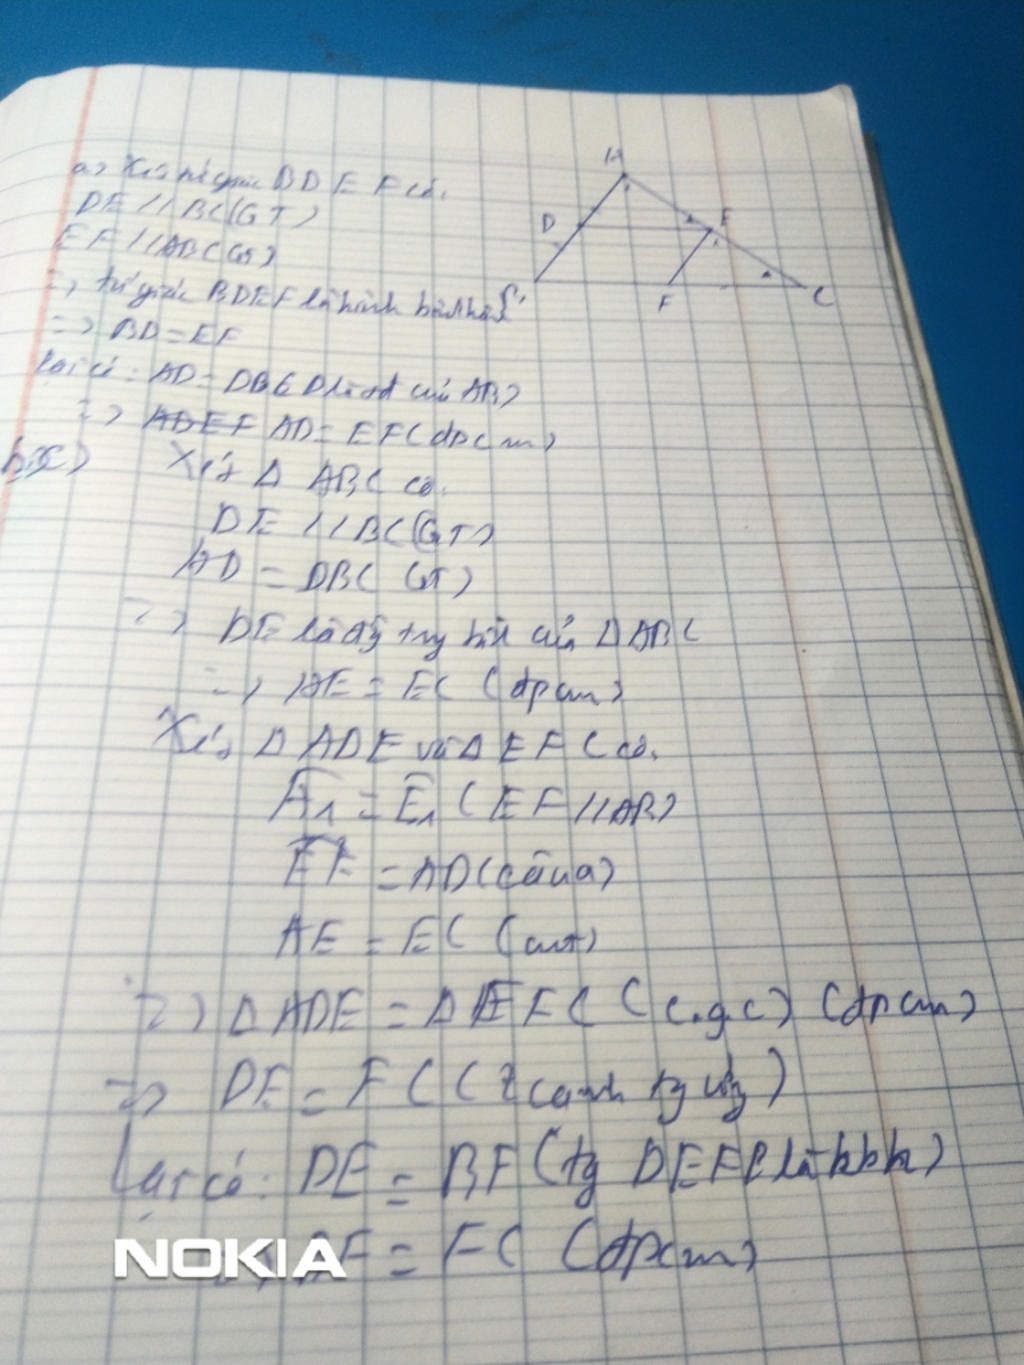 a) Xét tứ giác BDEF có:
DE // BC (GT)
EF // AB (GT)
=> tứ giác BDEF là hình bình hành
=> BD = EF
Lại có: AD = DB (D là tđ của AB)
=> AD = EF (đpcm)
Xét Δ ABC có:
DE // BC (GT)
AD = DB (GT)
=> DE là đg trg bình của Δ ABC
=> AE = EC (đpcm)
Xét Δ ADE và Δ EFC có:
A1 = E1 (EF // AB)
EF = AD (câu a)
AE = EC (cmt)
=> Δ ADE = Δ EFC (c.g.c) (đpcm)
=> DE = FC (2 cạnh tg ứng)
Lại có: DE = BF (tg DEFB là hbh)
= FC (đpcm)
A
D
E
F
C
NOKIA